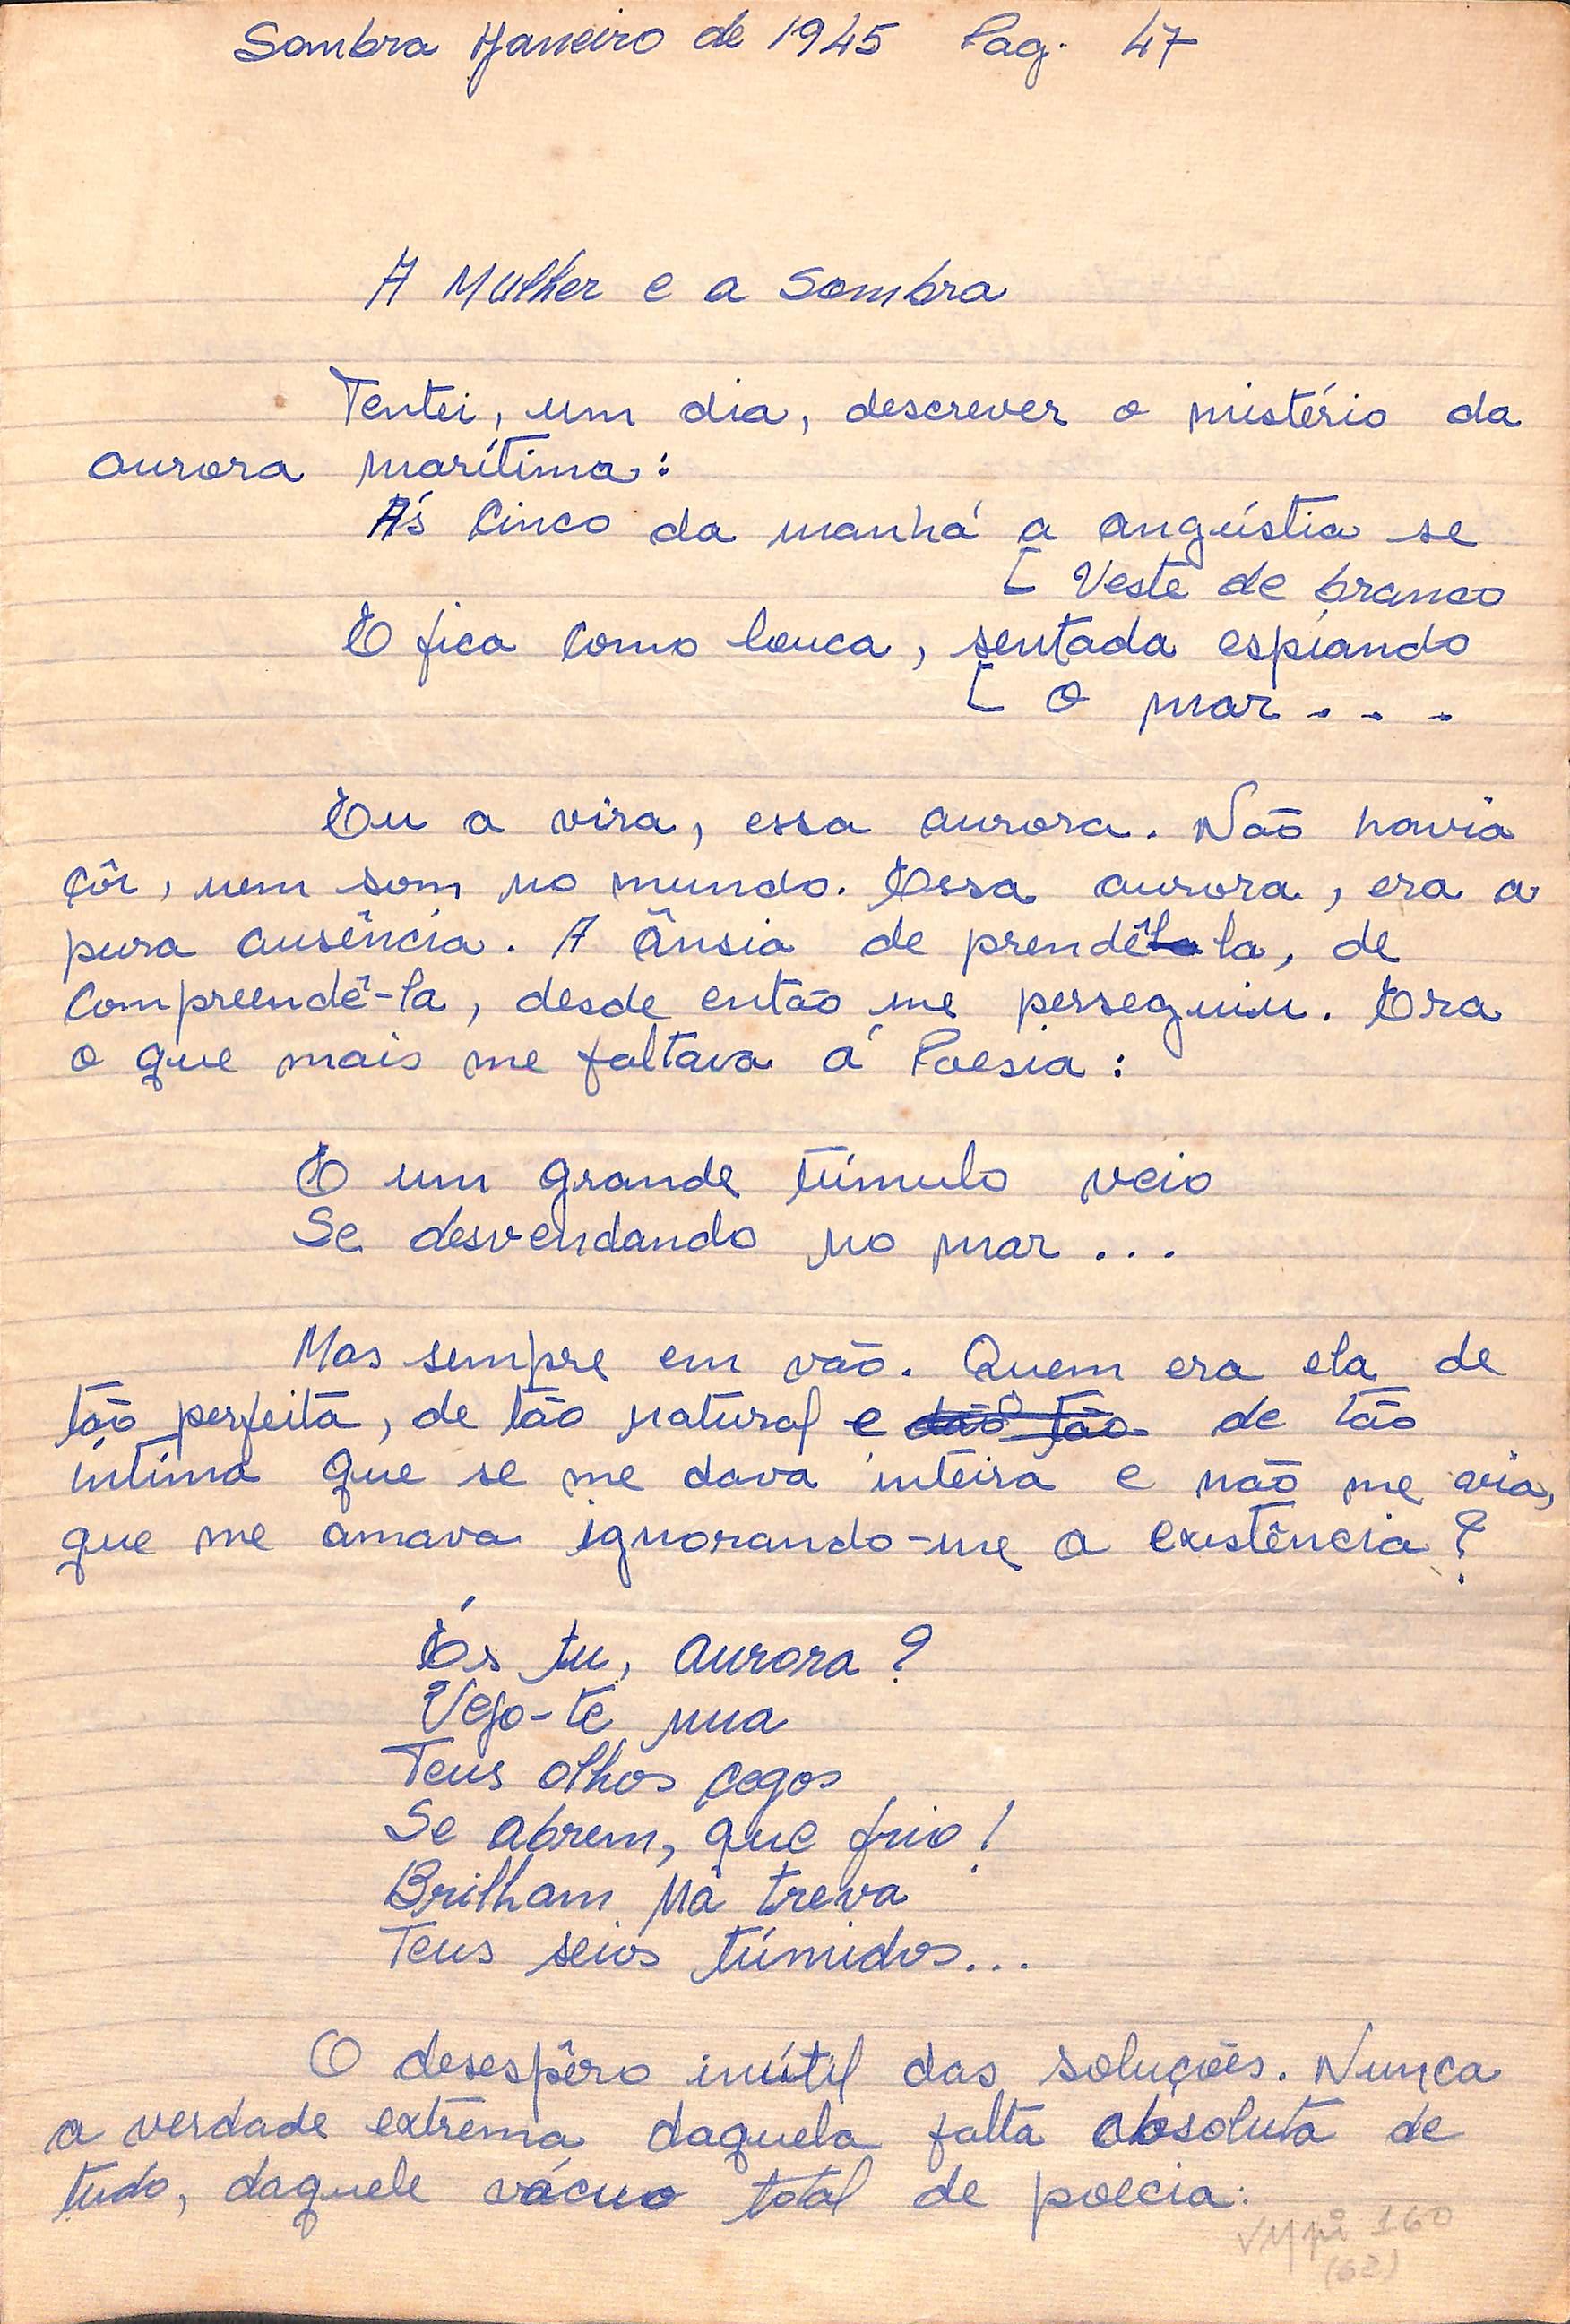 Sombra Janeiro de 1945 Pag. 47
A Mulher e a Sombra
Tentei, um dia, descrever o mistério da
aurora marítima:
Ás Cinco da manhá a angústia se
[ Veste de branco
E fica como louca, sentada espiando
[ O mar . . .
Eu a vira, essa aurora. Não havia
côr, nem som no mundo. Essa aurora, era a
pura ausência. A ânsia de prendê-la, de
Compreendê-la, desde então me perseguiu. Era
o que mais me faltava á Poesia:
E um grande túmulo veio
Se desvendando no mar . . .
Mas sempre em vão. Quem era ela de
tão perfeita, de tão natural e de tão
íntima que se me dava inteira e não me via,
que me amava ignorando-me a existência?
És tu, aurora?
Vejo-te nua
Teus olhos cegos
Se abrem, que frio!
Brilham na treva
Teus seios túmidos...
O desespêro inútil das soluções. Nunca
a verdade extrema daquela falta absoluta de
tudo, daquele vácuo total de poecia:
VMpi 160
(62)